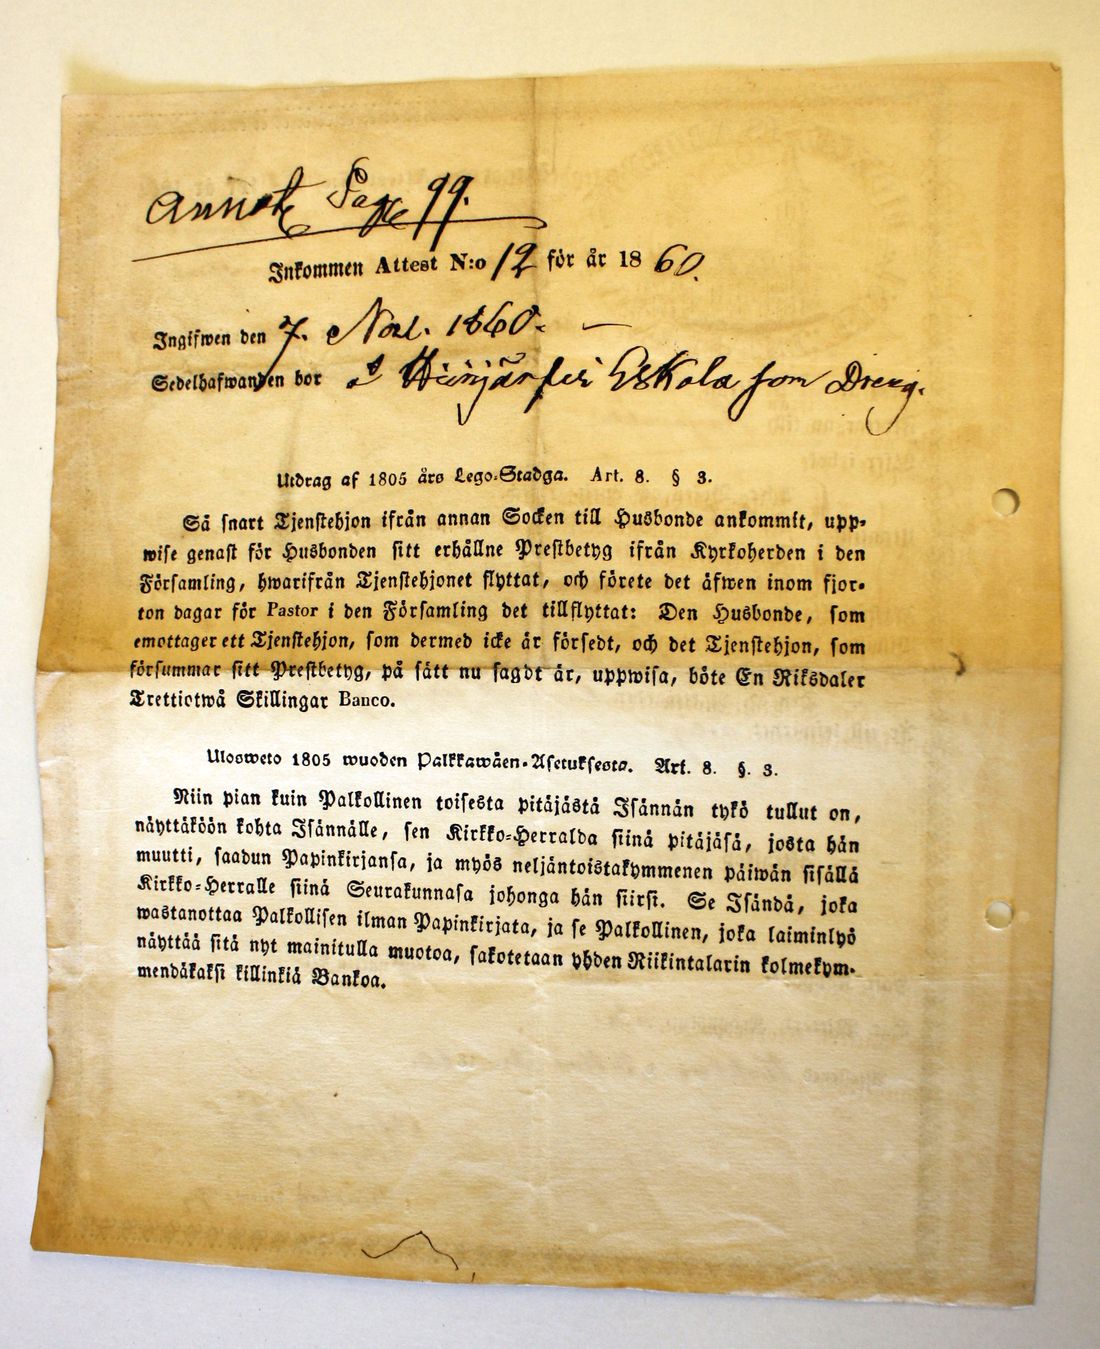 Annot. Pag 99.
Inkommen Attest N:o 12 för år 1860.
Ingifwen den 7. Nov. 1860.
Sedelhafwanden bor i Eskola som Dreng.
Utdrag af 1805 års Lego-Stadga. Art. 8. § 3.
Så snart Tjenstehjon ifrån annan Socken till Husbonde ankommit, upp-
wise genast för Husbonden sitt erhållne Prestbetyg ifrån Kyrkoherden i den
Församling, hwarifrån Tjenstehjonet flyttat, och förete det äfwen inom fjor-
ton dagar för Pastor i den Församling det tillflyttat: Den Husbonde, som
emottager ett Tjenstehjon, som dermed icke är försedt, och det Tjenstehjon, som
försummar sitt Prestbetyg, på sätt nu sagdt är, uppwisa, böte En Riksdaler
Trettiotwå Skillingar Banco.
Ulosweto 1805 wuoden Palkkawäen-Asetuksesta. Art. 8. §. 3.
Niin pian kuin Palkollinen toisesta pitäjästä Isännän tykö tullut on,
näyttäköön kohta Isännälle, sen Kirkko-Herralda siinä pitäjäsä, josta hän
muutti, saadun Papinkirjansa, ja myös neljäntoistakymmenen päiwän sisällä
Kirkko-Herralle siinä Seurakunnasa johonga hän siirsi. Se Isändä, joka
wastanottaa Palkollisen ilman Papinkirjata, ja se Palkollinen, joka laiminlyö
näyttää sitä nyt mainitulla muotoa, sakotetaan yhden Riikintalarin kolmekym-
mendäkaksi killinkiä Bankoa.